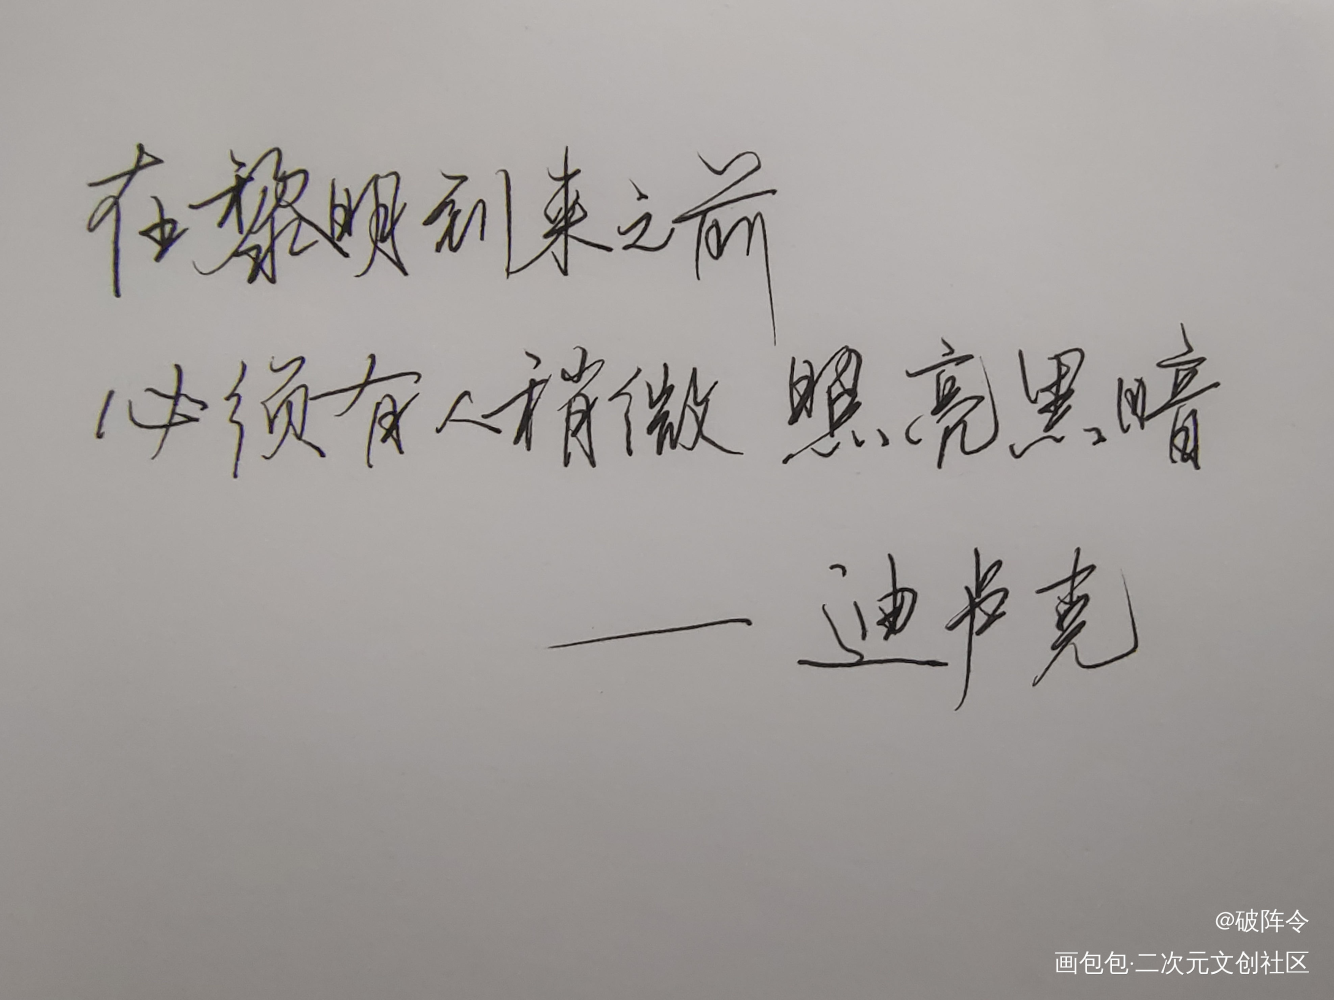 在黎明到来之前
必须有人稍微 照亮黑暗
—— 迪卢克
@破阵令
画包包·二次元文创社区